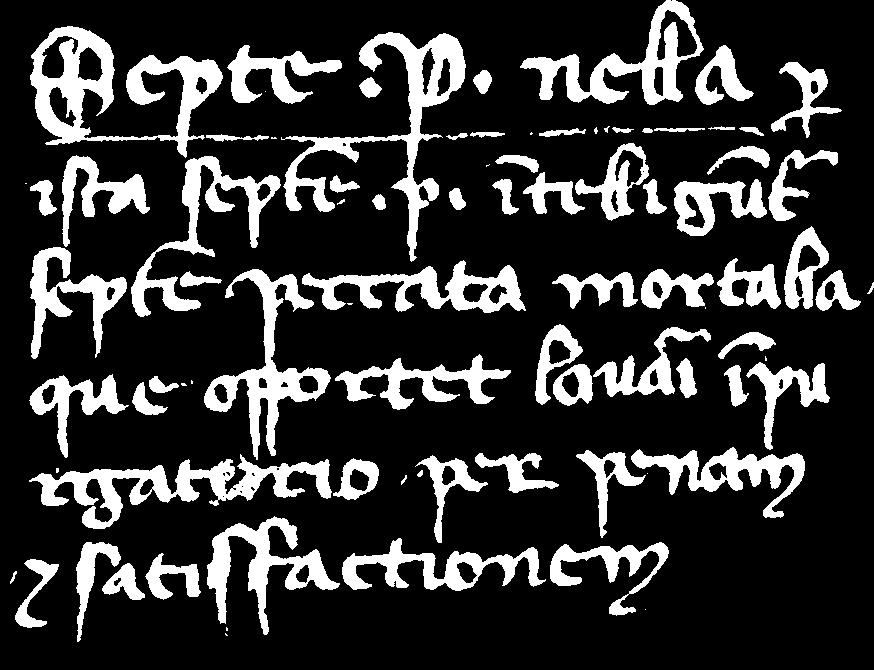 Septe .P. nella ꝑ
ista septē .p. ītelligūt̄
septē peccata mortalia
que opportet lauāi īpu
rgatorio per penam
⁊ satisfactionem